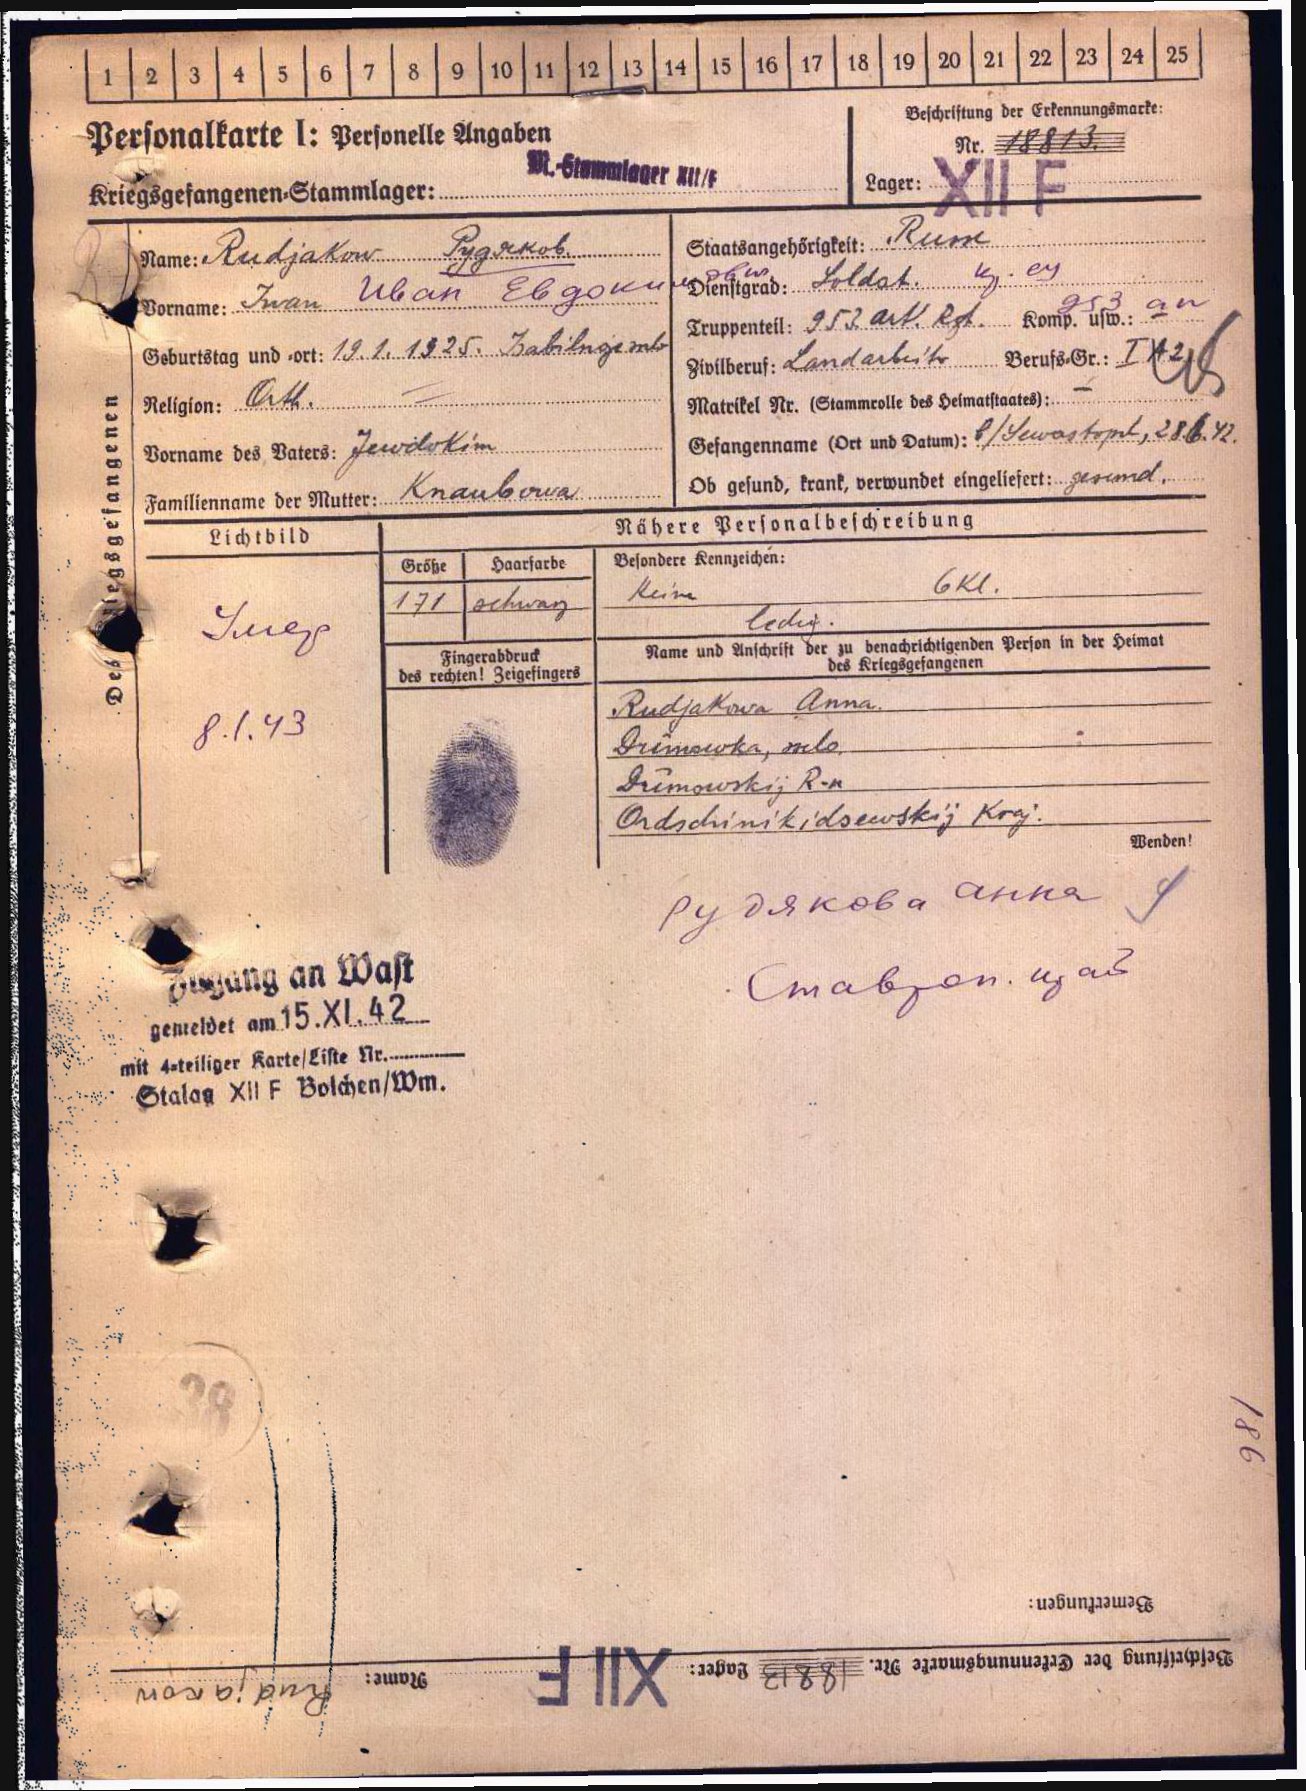 1 2 3 4 5 6 7 8 9 10 11 12 13 14 15 16 17 18 19 20 21 22 23 24 25
Personalkarte I: Personelle Angaben
Kriegsgefangenen-Stammlager: M.-Stammlager XII/F
Beschriftung der Erkennungsmarke:
Nr. 18813.
Lager: XII F
Des Kriegsgefangenen
Name: Rudjakow Рудяков
Vorname: Iwan Иван Евдокимович
Geburtstag und -ort: 19.1.1925.
Religion: Orth.
Vorname des Vaters: Jewdokim
Familienname der Mutter: Knaubowa
Staatsangehörigkeit: Russe
Dienstgrad: Soldat.
Truppenteil: 953. Art. Rgt. Komp. usw.: – 953 ап
Zivilberuf: Landarbeiter Berufs-Gr.: I
Matrikel Nr. (Stammrolle des Heimatstaates): –
Gefangenname (Ort und Datum): b/Sewastopol, 28.6.42.
Ob gesund, krank, verwundet eingeliefert: gesund.
Lichtbild
Умер
8.1.43
Nähere Personalbeschreibung
Größe Haarfarbe Besondere Kennzeichen:
171 schwarz Keine 6 Kl.
ledig.
Fingerabdruck
des rechten! Zeigefingers
Name und Anschrift der zu benachrichtigenden Person in der Heimat
des Kriegsgefangenen
Rudjakowa Anna.
Drimowka, selo.
Drimowskij R-n
Ordschinikidsewskij Kraj.
Wenden!
Рудякова Анна
Ставроп. край
Zugang an Wast
gemeldet am 15.XI.42
mit 4-teiliger Karte/Liste Nr.
Stalag XII F Bolchen/Wm.
38
186
Bemerkungen:
Beschriftung der Erkennungsmarke Nr. 18813 Lager: XII F Name: Rudjakow